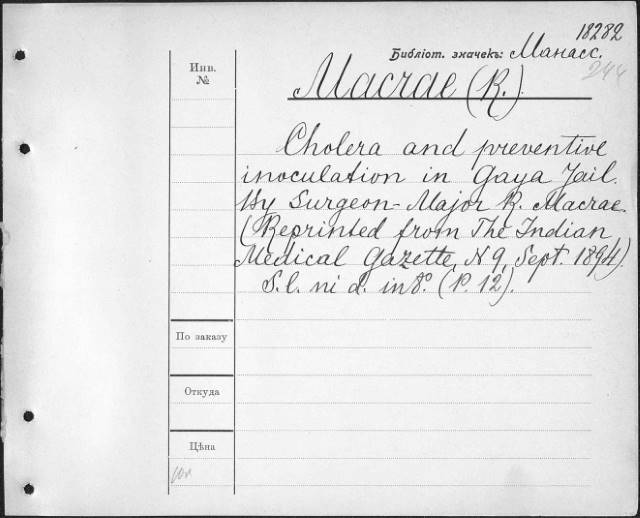 18282
Библіот. значекъ: Манасс.
244
Инв.
№
Macrae (R.)
Cholera and preventive
inoculation in Gaya Jail.
By Surgeon-Major R. Macrae.
(Reprinted from The Indian
Medical Gazette, N 9, Sept. 1894).
S. l. ni d. in 8°. (P. 12).
По заказу
Откуда
Цѣна